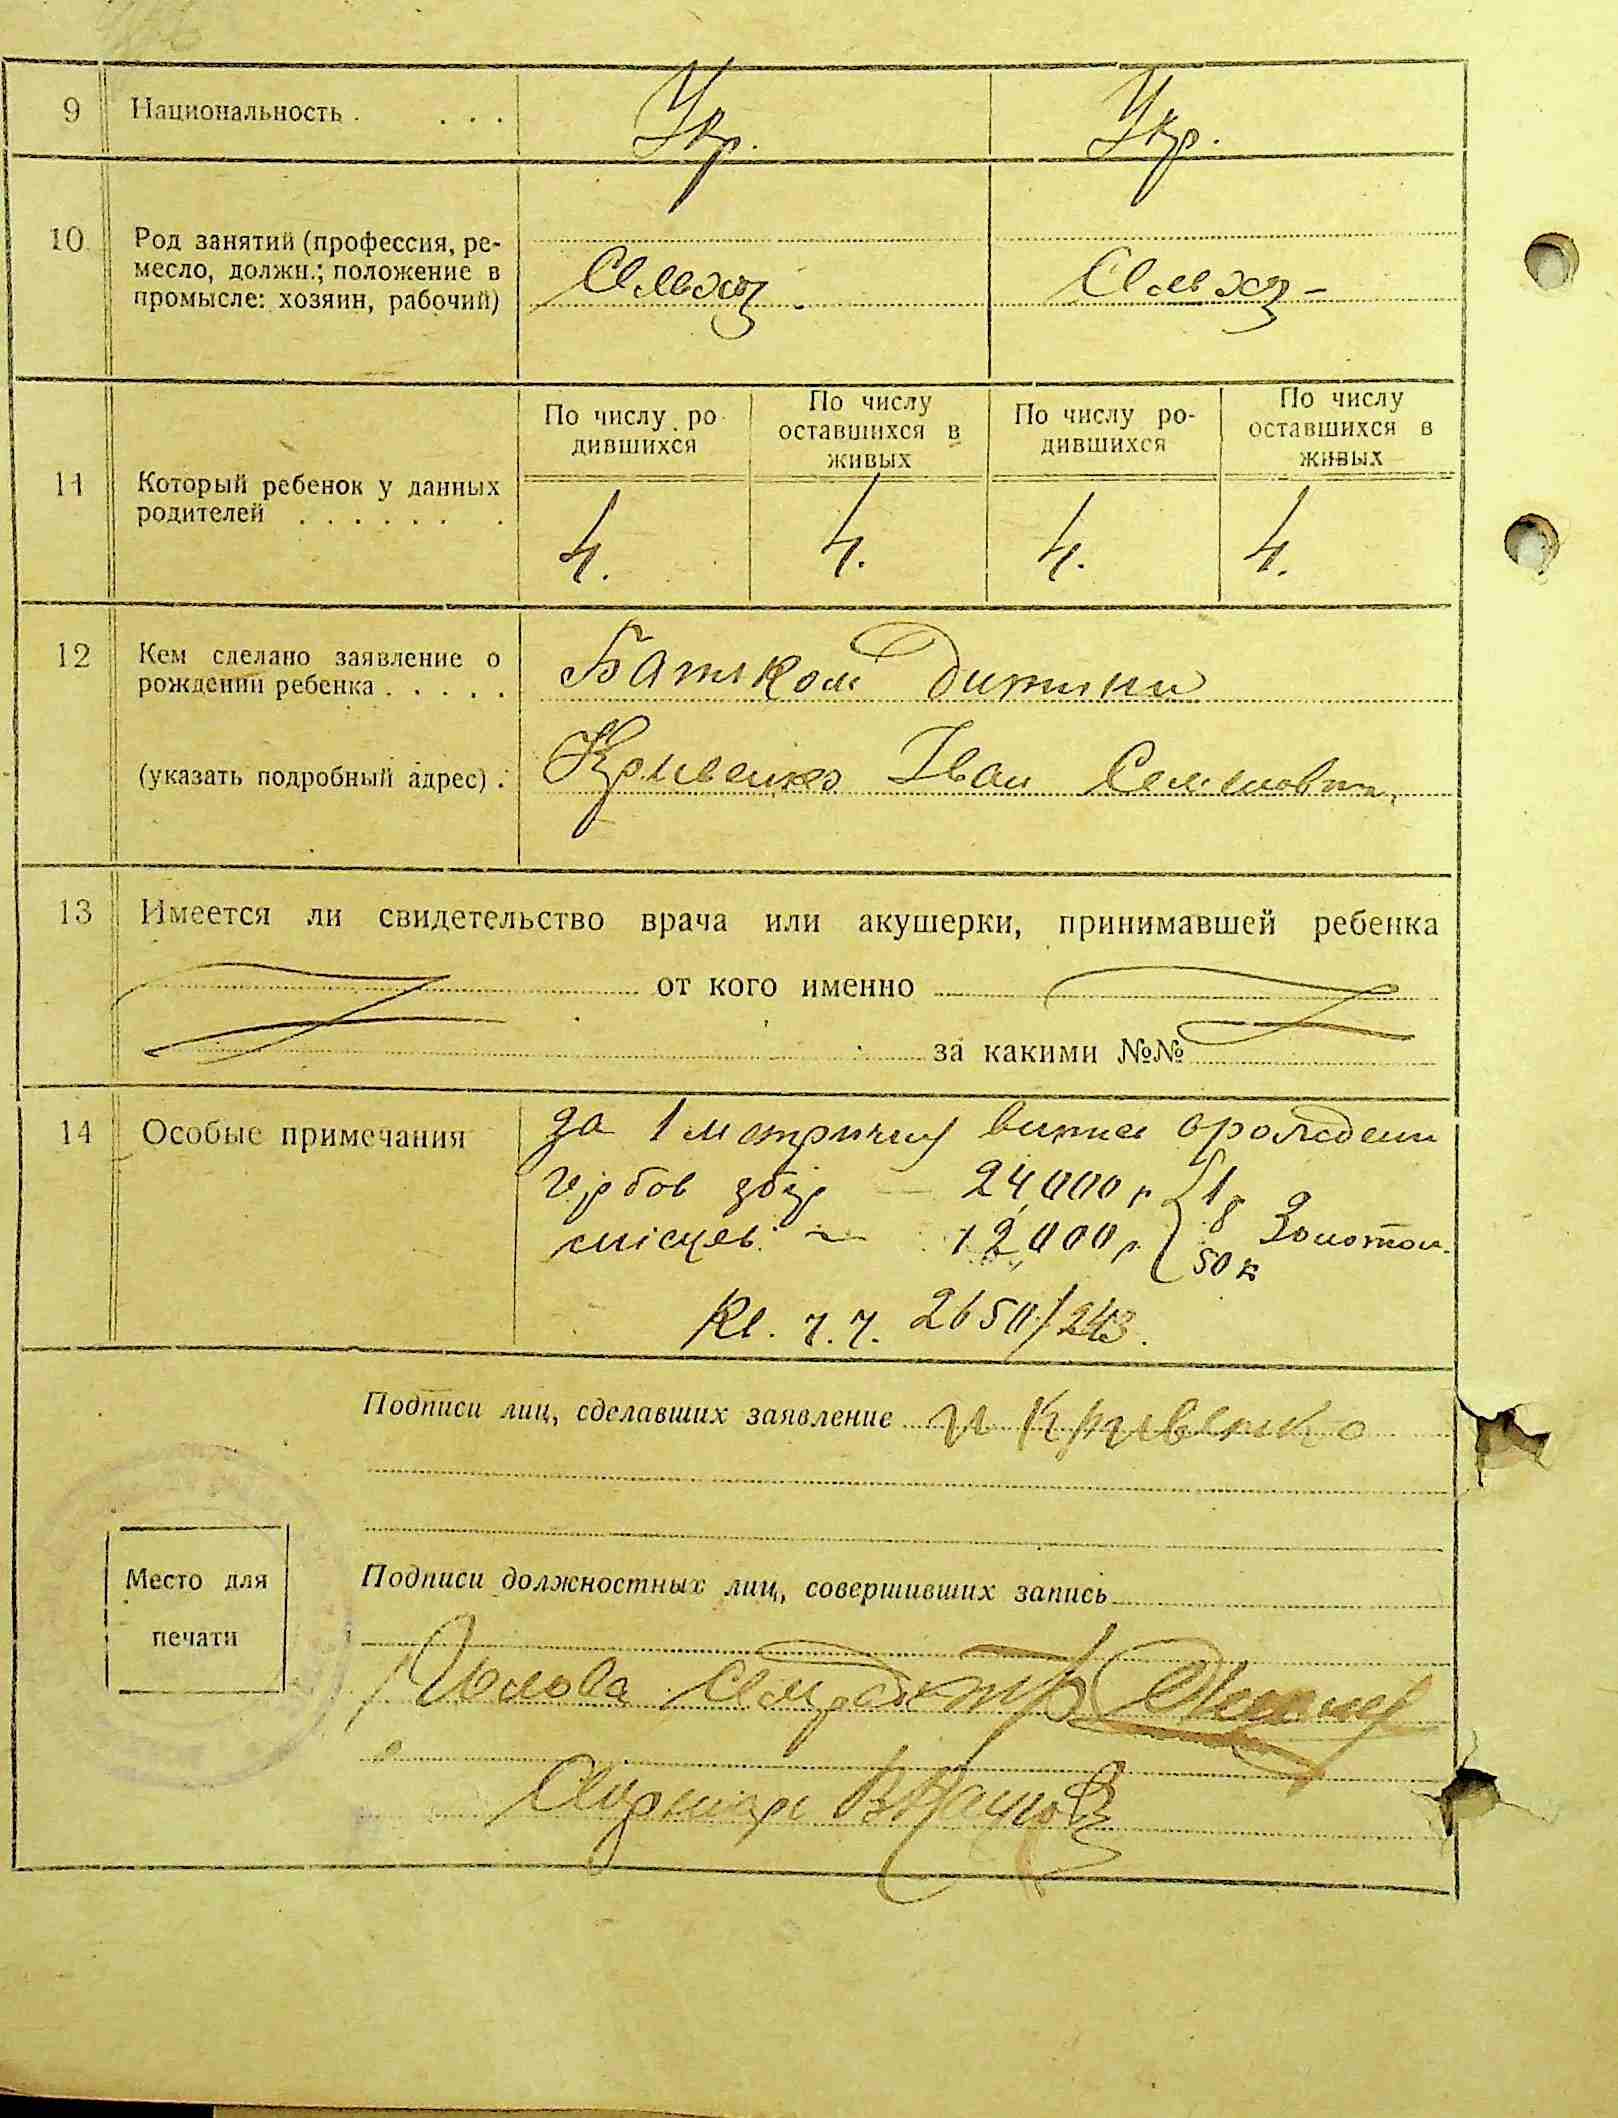 9 Национальность . . . . Укр. Укр.
10 Род занятий (профессия, ре-
месло, должн.; положение в
промысле: хозяин, рабочий)
Сельхоз. Сельхоз -
По числу ро
дившихся
По числу
оставшихся в
живых
По числу ро-
дившихся
По числу
оставшихся в
живых
11 Который ребенок у данных
родителей . . . . . . .
4. 4. 4. 4.
12 Кем сделано заявление о
рождении ребенка . . . . .
Батьком дитини
(указать подробный адрес) . Кривенко Іван Семенович
13 Имеется ли свидетельство врача или акушерки, принимавшей ребенка
от кого именно
за какими №№
14 Особые примечания
за 1 метричну
гербов збір — 24,000 р 1 р Золотом
місцев. 12,000 р 50 к
2650/243.
Подписи лиц, сделавших заявление и Кривенко
Место для
печати
Подписи должностных лиц, совершивших запись
Голова